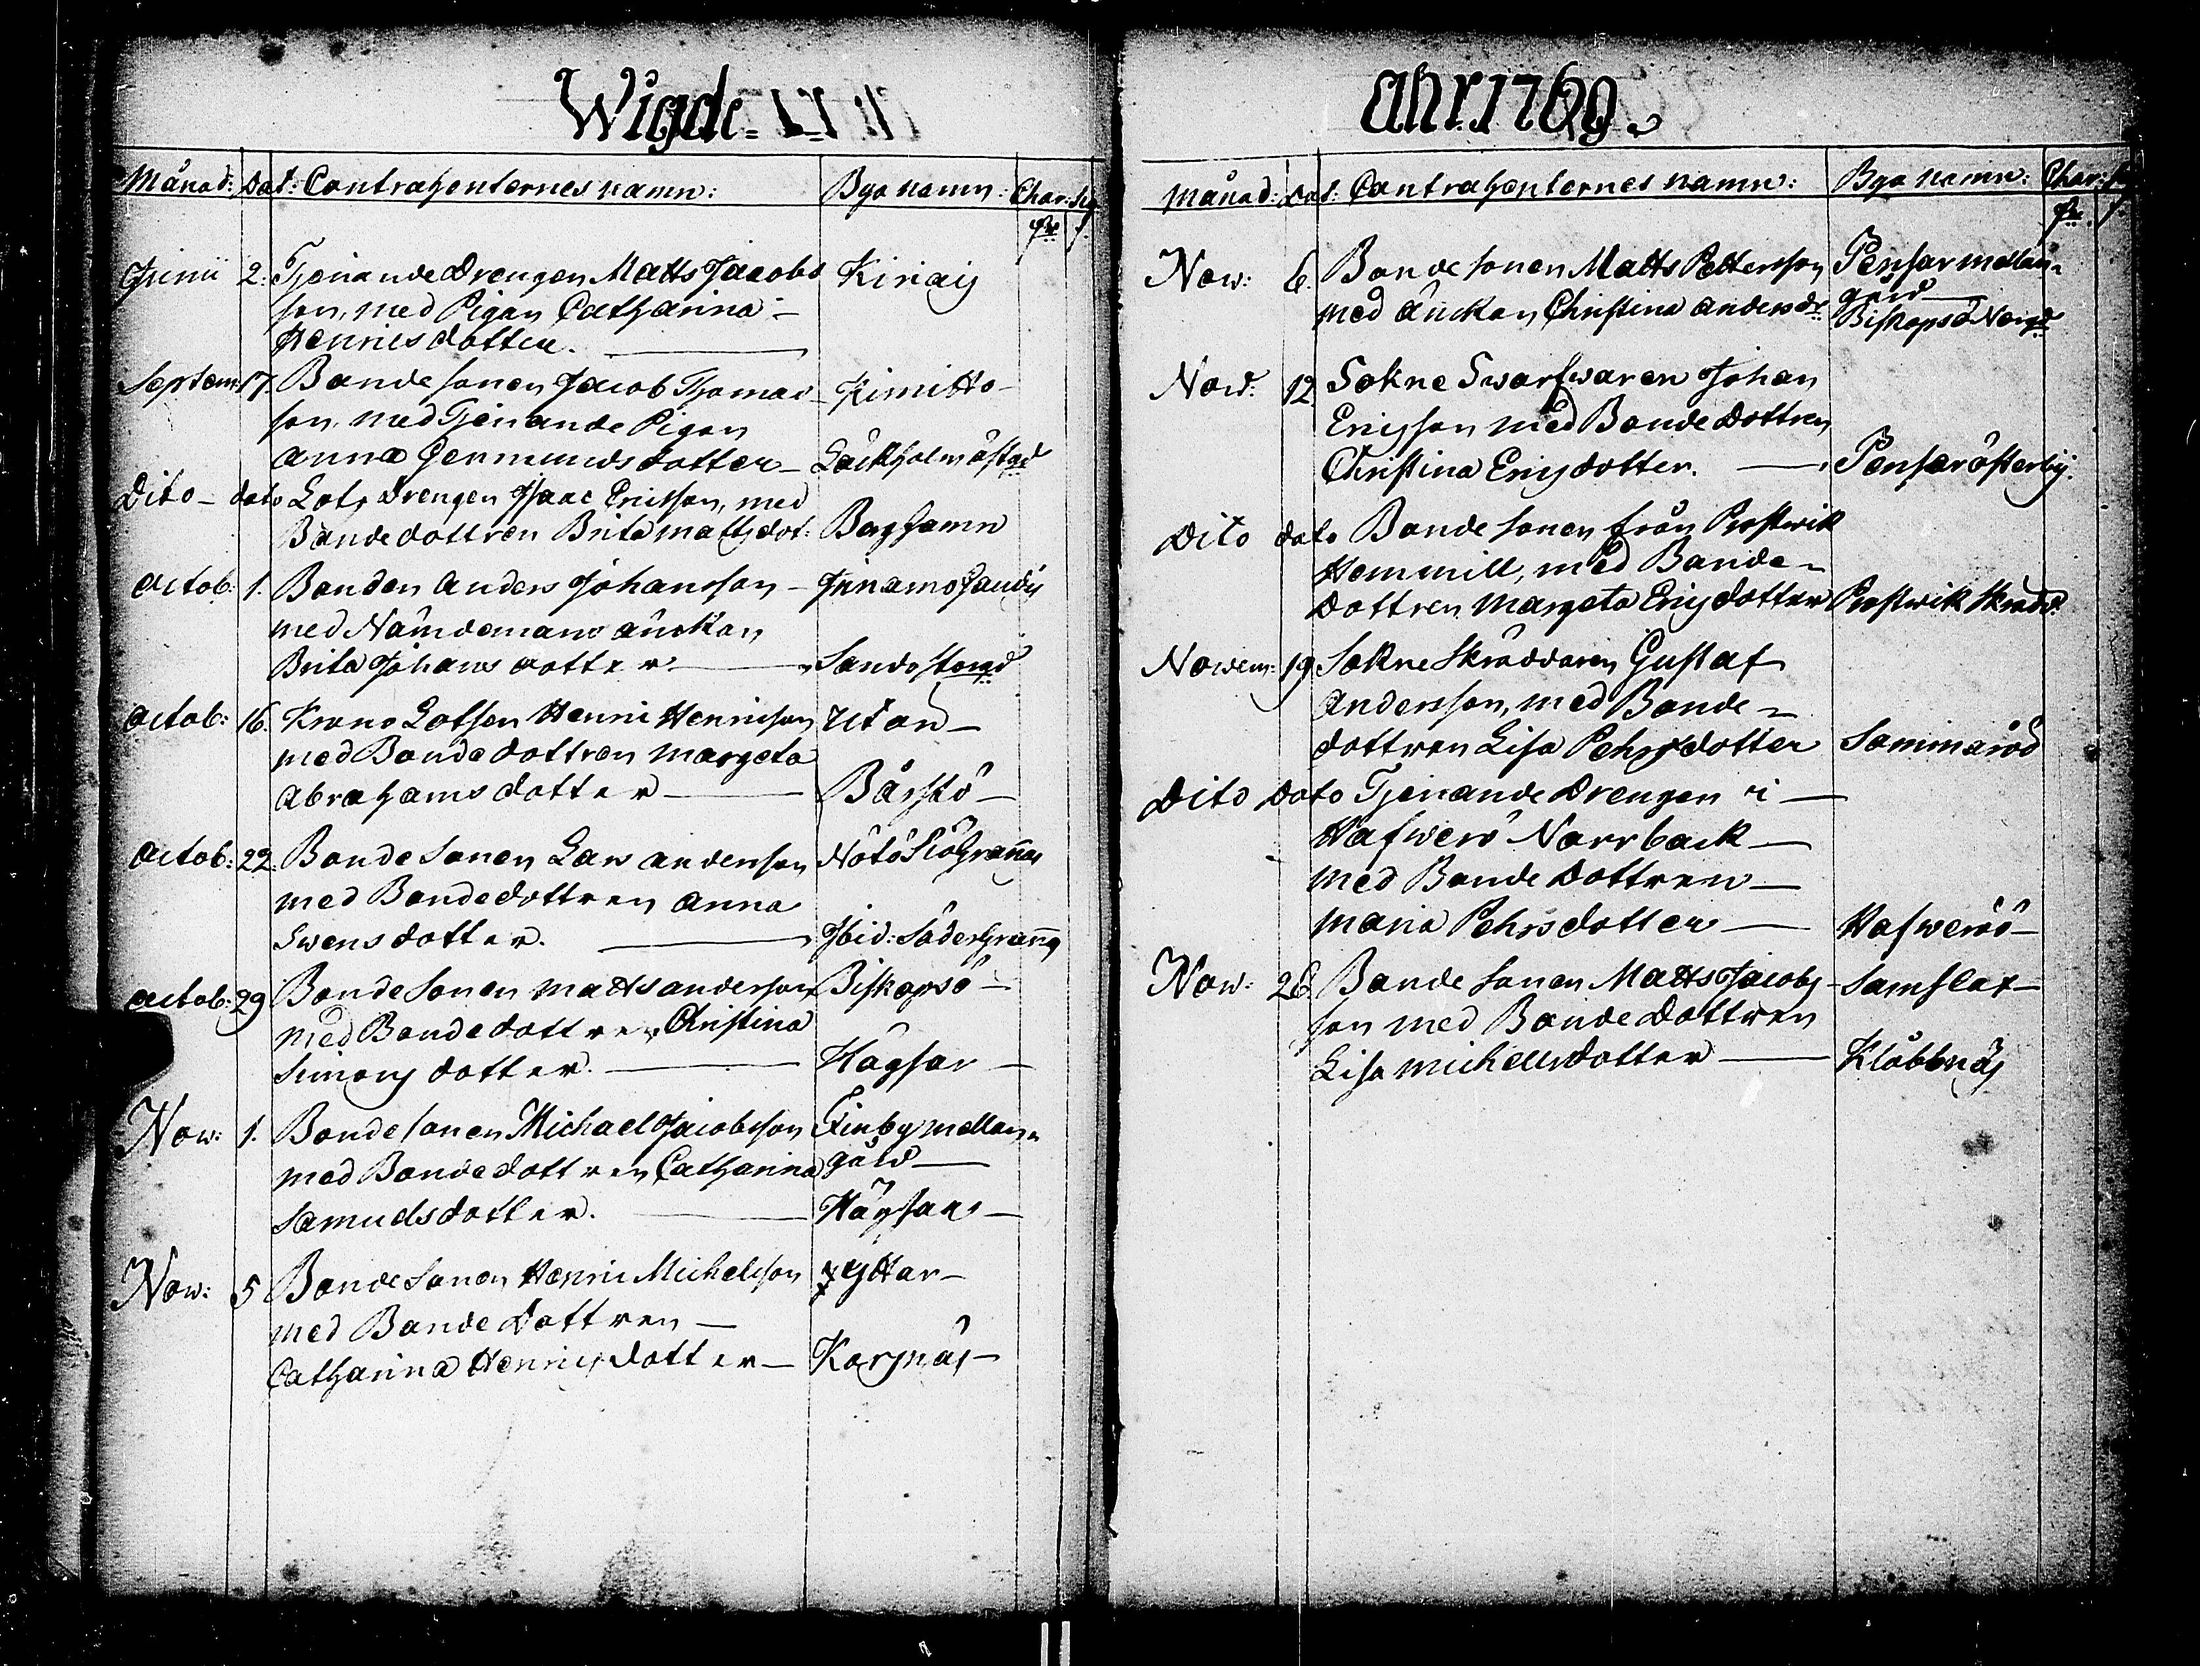 Wigde
Månad: Dat: Contrahenternes namn: Bya namn: Char: Sig
Junii 2. Tjenande Drengen Matts Jacobs Kiriais
son, med Pigan Catharina
Henricsdotter.
Septem: 17. Bondesonen Jacob Thomas- Kimitto
son, med Tjenande Pigan
Anna Germundsdotter Löckholm östgd
Dito dato Lots Drengen Isaac Ericsson, med
Bondedottren Brita Mattsdot: Berghamn
Octob: 1. Bonden Anders Johansson
med Nämdemans änckan
Brita Johansdotter Sandö
Octob: 16. Krono Lotsen Henric Henricsson Utön
med Bondedottren Margeta
Abrahamsdotter Bärskö
Octob: 22. Bondesonen Lars Andersson Nötö Siögrannas
med Bondedottren Anna
Swensdotter. Ibid: Södergranas
Octob: 29 Bondesonen Matts Andersson Biskopsö
med Bondedottren Christina
Simonsdotter. Hagsar
Now: 1. Bondesonen Michael Jacobsson Finby mellan-
med Bondedottren Catharina gård
Samuelsdotter. Högsar
Now: 5 Bondesonen Henric Michelsson Yttar
med Bondedottren
Catharina Henricsdotter Korsnäs
Ahr 1769.
Månad: Dat: Contrahenternes namn: Bya namn: Char: Sig
Now: 6. Bondesonen Matts Pettersson Pensar mellan-
med änckan Christina Andersdr gård
Biskopsö Norgd
Now: 12. Sokne Swarfwaren Johan
Ericsson med Bondedottren
Christina Ericsdotter. Pensar österby:
Dito dato Bondesonen från Prostwik
Hemmill, med Bonde-
dottren Margeta Ericsdotter Prostwik
Nowem: 19 Sokne Skräddaren Gustaf
Andersson, med Bonde-
dottren Lisa Pehrsdotter Sommarö
Dito Dato Tjenande Drengen i
Hafwerö Norrback
med Bondedottren
Maria Pehrsdotter Hafwerö
Now: 26. Bondesonen Matts Jacobs- Somslax
son med Bondedottren
Lisa Michelsdotter Klobbnäs